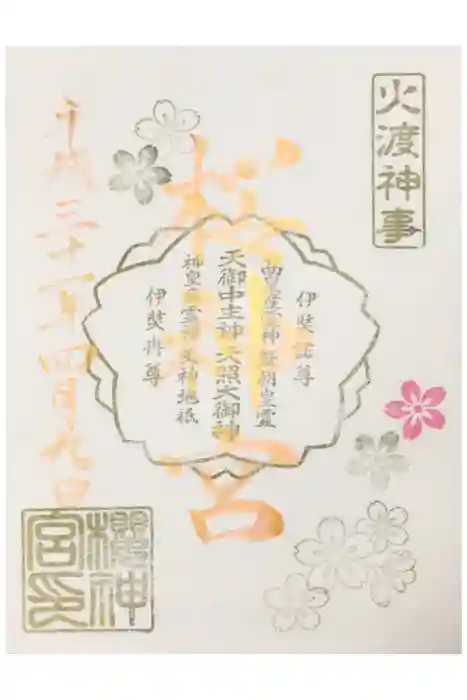 火渡神事
桜神宮
伊奘諾尊
神産巣神 歴朝皇霊
天御中主神 天照大御神
神皇産霊神 天神地祇
伊奘冉尊
平成三十一年四月九日
櫻神
宮印